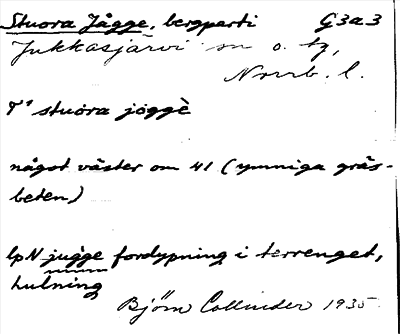 Stuora Jågge, bergparti G3a3
Jukkasjärvi sn o. tg,
Norrb. l.
T¹ stuora jòggè
något väster om 41 (ymniga gräs-
beten)
lpN jug̀ge fordypning i terrenget,
hulning
Björn Collinder 1935